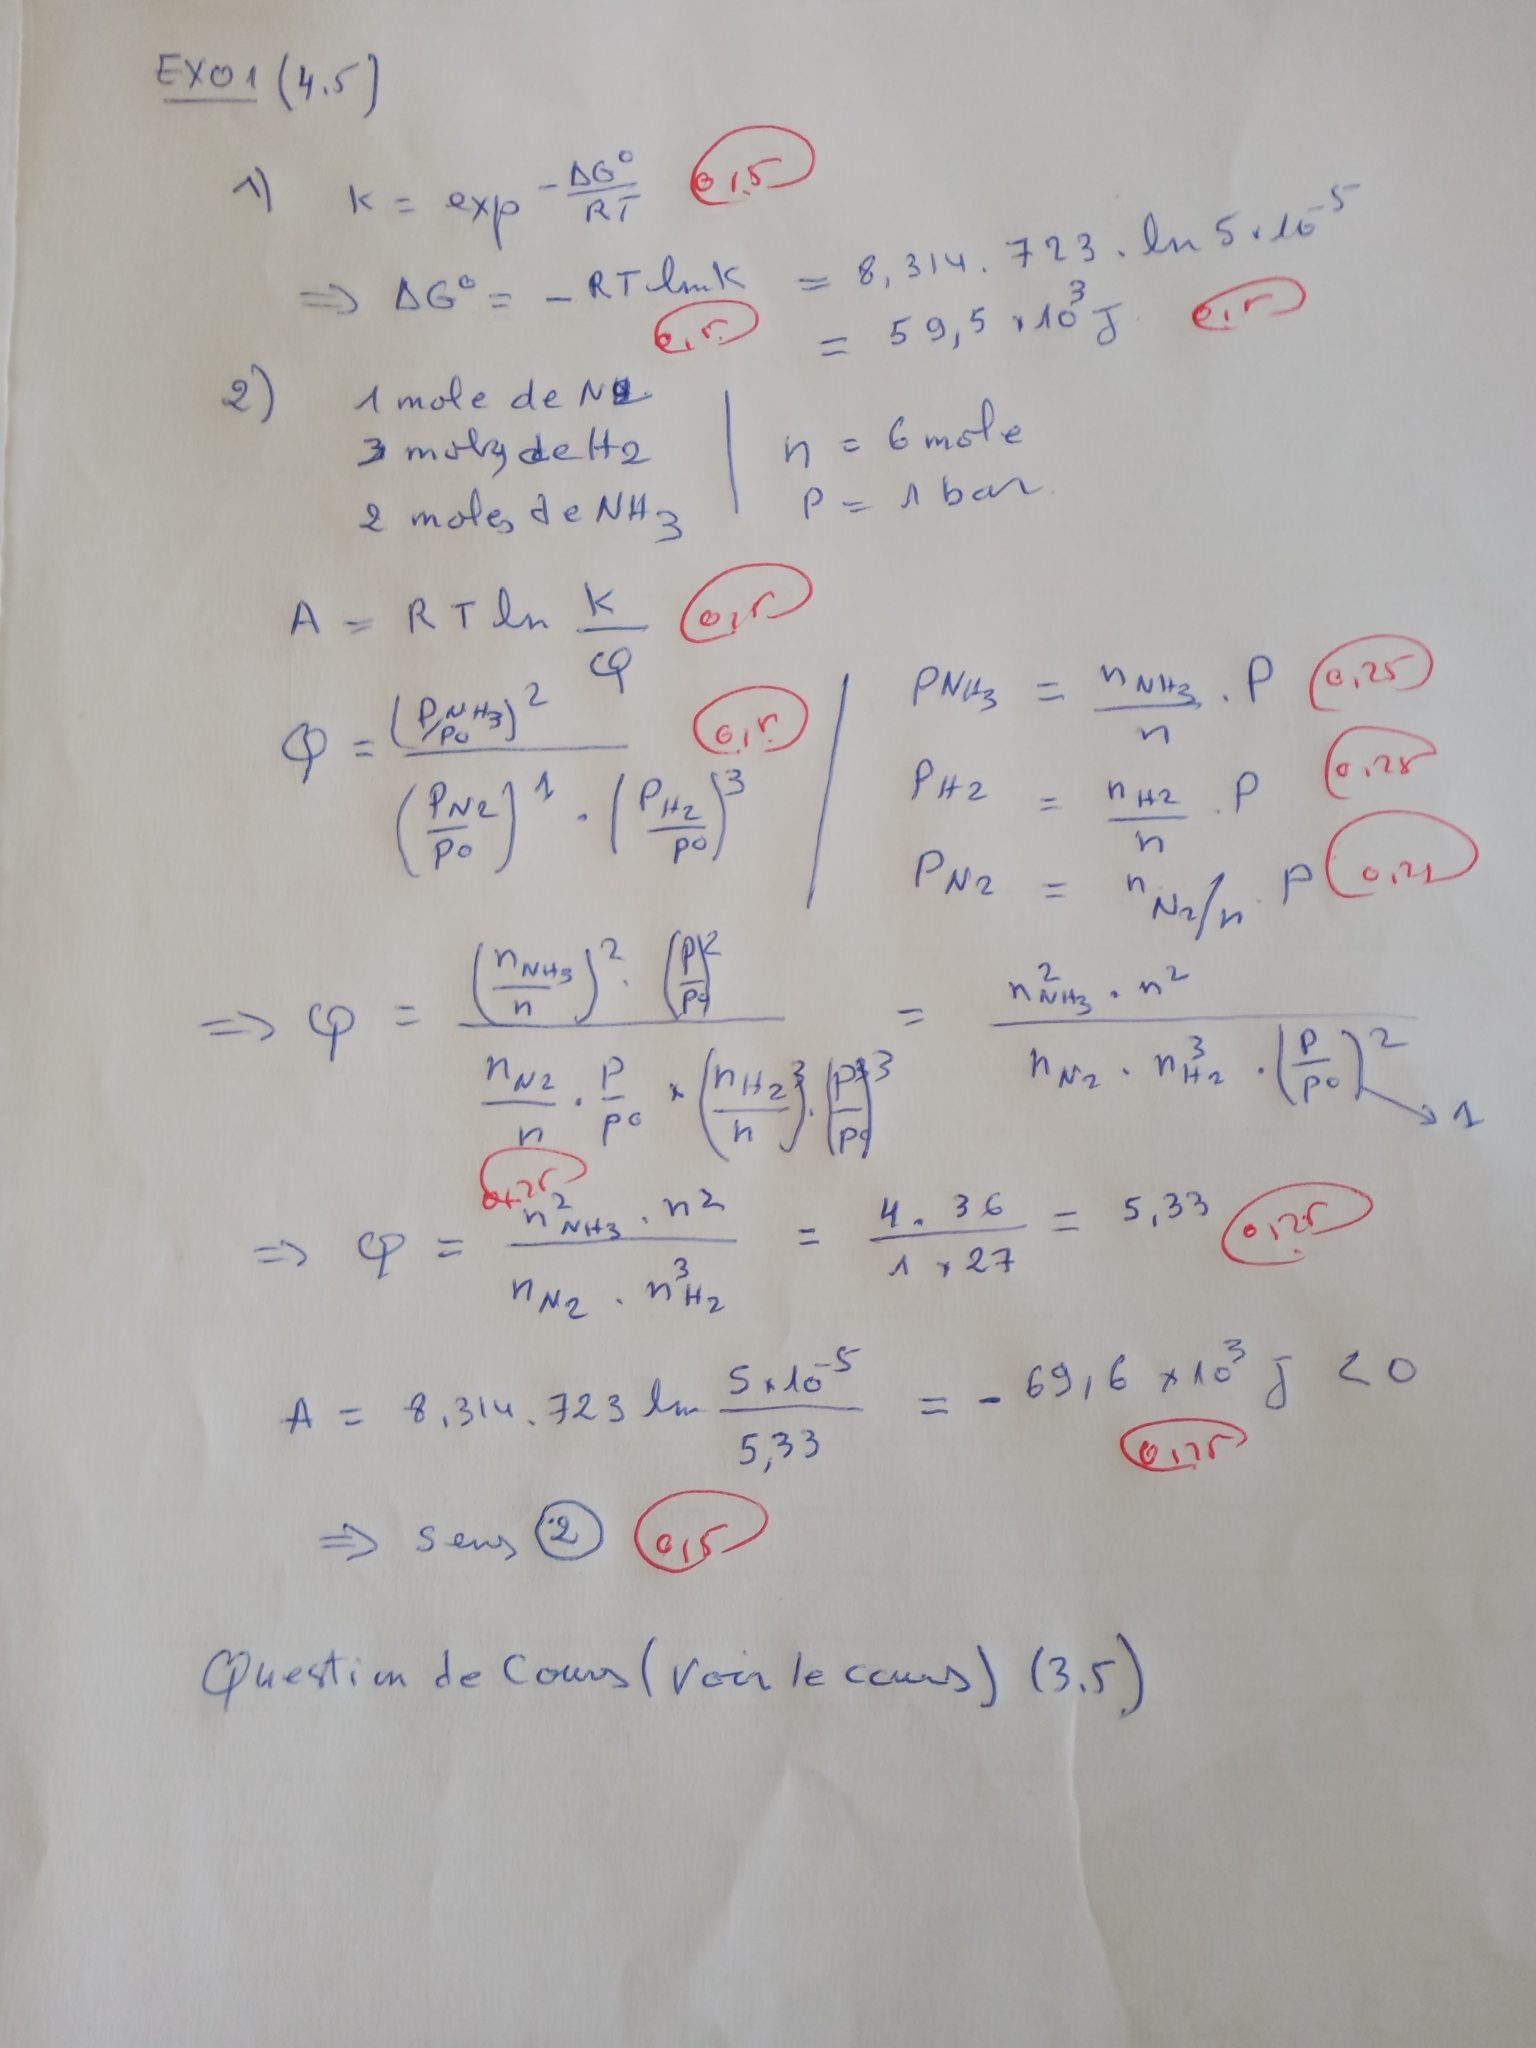 EXO1 (4.5)
1) K = exp -ΔG°/RT 0,5
=> ΔG° = -RT ln K = 8,314. 723. ln 5.10^-5
0,5 = 59,5 x 10^3 J 0,5
2) 1 mole de N2
3 moles de H2 | n = 6 mole
2 moles de NH3 | P = 1 bar
A = RT ln K/φ 0,5
φ = (P NH3/P0)^2 / ((P N2/P0)^1 . (P H2/P0)^3) 0,5
P NH3 = n NH3/n . P 0,25
P H2 = n H2/n . P 0,25
P N2 = n N2/n . P 0,25
=> φ = ((n NH3/n)^2 . (P/P0)^2) / (n N2/n . P/P0 x (n H2/n)^3 . (P/P0)^3) = (n^2 NH3 . n^2) / (n N2 . n^3 H2 . (P/P0)^2) → 1
0,25
=> φ = (n^2 NH3 . n^2) / (n N2 . n^3 H2) = (4 . 36) / (1 x 27) = 5,33 0,25
A = 8,314. 723 ln (5 x 10^-5 / 5,33) = - 69,6 x 10^3 J < 0
0,25
=> sens 2 0,5
Question de Cours (Voir le cours) (3.5)